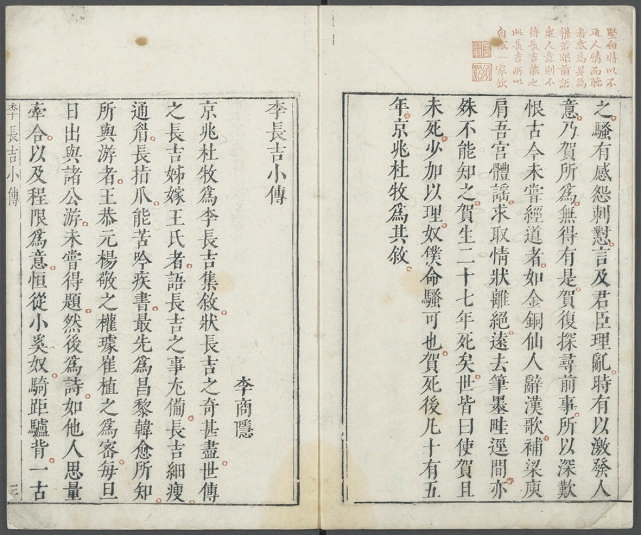 堅白特以不
近人情而聽
者惑焉是爲
辨若眼前語
衆人意則不
待長吉能之
此長吉所以
自成一家歟
之騷有感怨刺懟言及君臣理亂時有以激發人
意乃賀所爲無得有是賀復探尋前事所以深歎
恨古今未嘗經道者如金銅仙人辭漢歌補梁庾
肩吾宮體謡求取情狀離絕遠去筆墨畦逕間亦
殊不能知之賀生二十七年死矣世皆曰使賀且
未死少加以理奴僕命騷可也賀死後凡十有五
年京兆杜牧爲其敘
李長吉小傳
李商隱
京兆杜牧爲李長吉集敘狀長吉之奇甚盡世傳
之長吉姊嫁王氏者語長吉之事尤備長吉細瘦
通眉長指爪能苦吟疾書最先爲昌黎韓愈所知
所與游者王恭元楊敬之權璩崔植之爲密每旦
日出與諸公游未嘗得題然後爲詩如他人思量
牽合以及程限爲意恒從小奚奴騎距驢背一古
李長吉小傳
三